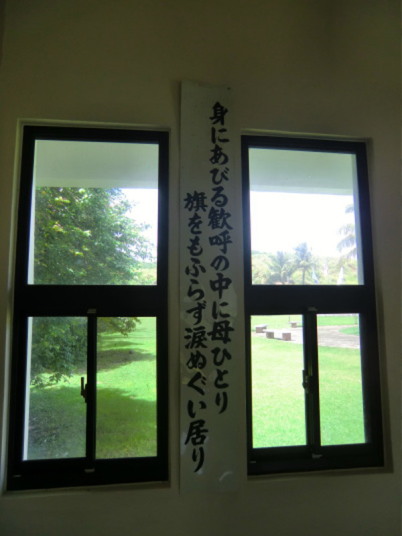 身にあびる歓呼の中に母ひとり
旗をもふらず涙ぬぐい居り